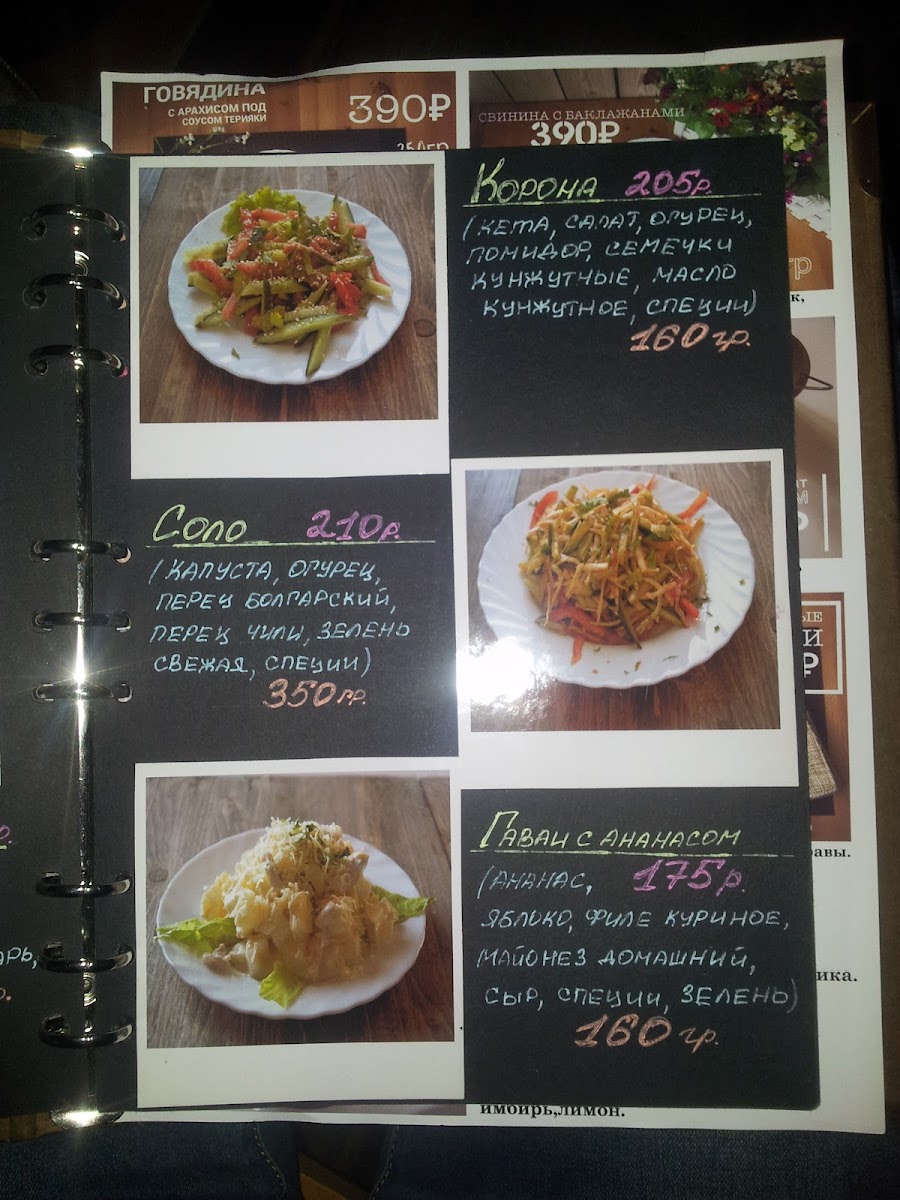 ГОВЯДИНА
С АРАХИСОМ ПОД
СОУСОМ ТЕРИЯКИ
390₽
СВИНИНА С БАКЛАЖАНАМИ
390₽
Корона 205р.
(КЕТА, САЛАТ, ОГУРЕЦ,
ПОМИДОР, СЕМЕЧКИ
КУНЖУТНЫЕ, МАСЛО
КУНЖУТНОЕ, СПЕЦИИ)
160 гр.
Соло 210р.
(КАПУСТА, ОГУРЕЦ,
ПЕРЕЦ БОЛГАРСКИЙ,
ПЕРЕЦ ЧИЛИ, ЗЕЛЕНЬ
СВЕЖАЯ, СПЕЦИИ)
350 гр.
Гаваи с ананасом
(АНАНАС, 175р.
ЯБЛОКО, ФИЛЕ КУРИНОЕ,
МАЙОНЕЗ ДОМАШНИЙ,
СЫР, СПЕЦИИ, ЗЕЛЕНЬ)
160 гр.
имбирь,лимон.